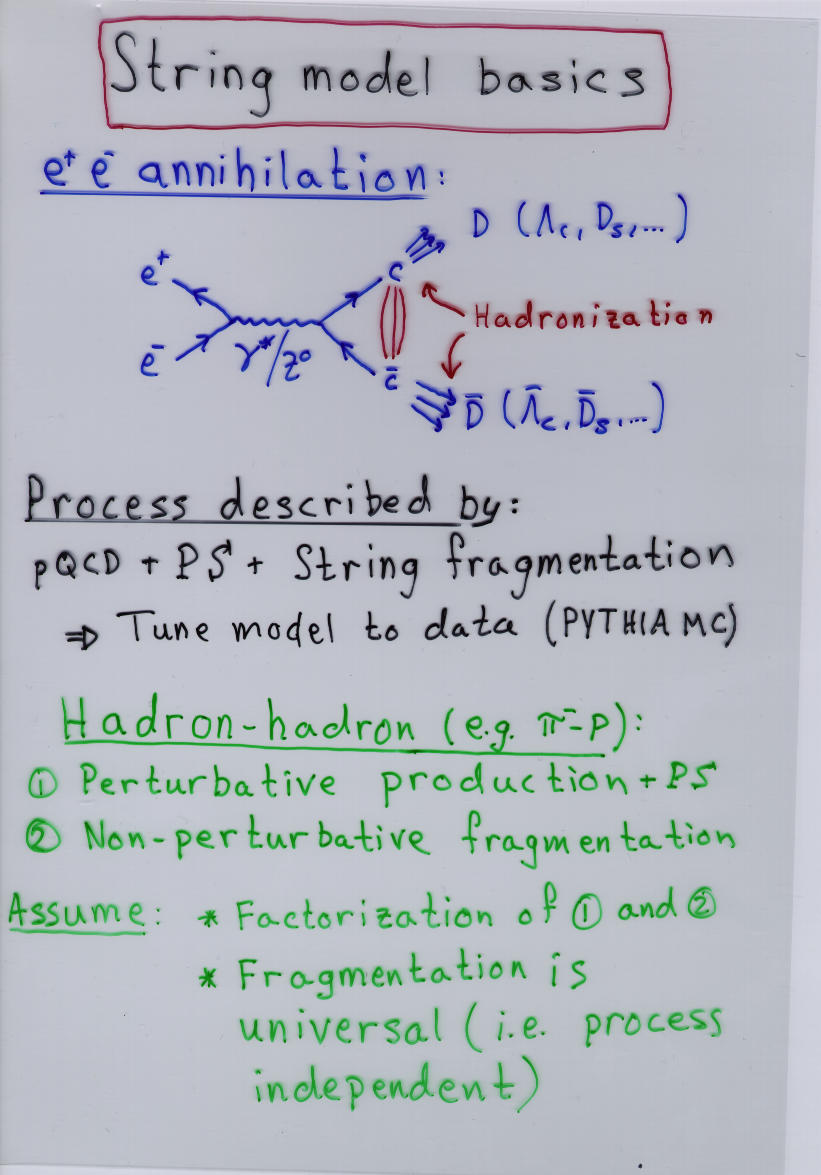 String model basics
e⁺ e⁻ annihilation:
D (Λc, Ds, ...)
e⁺
c
Hadronization
e⁻
γ*/Z⁰
c̄
D̄ (Λ̄c, D̄s, ...)
Process described by:
pQCD + PS + String fragmentation
⇒ Tune model to data (PYTHIA MC)
Hadron-hadron (e.g. π⁻-p):
① Perturbative production + PS
② Non-perturbative fragmentation
Assume: * Factorization of ① and ②
* Fragmentation is
universal (i.e. process
independent)